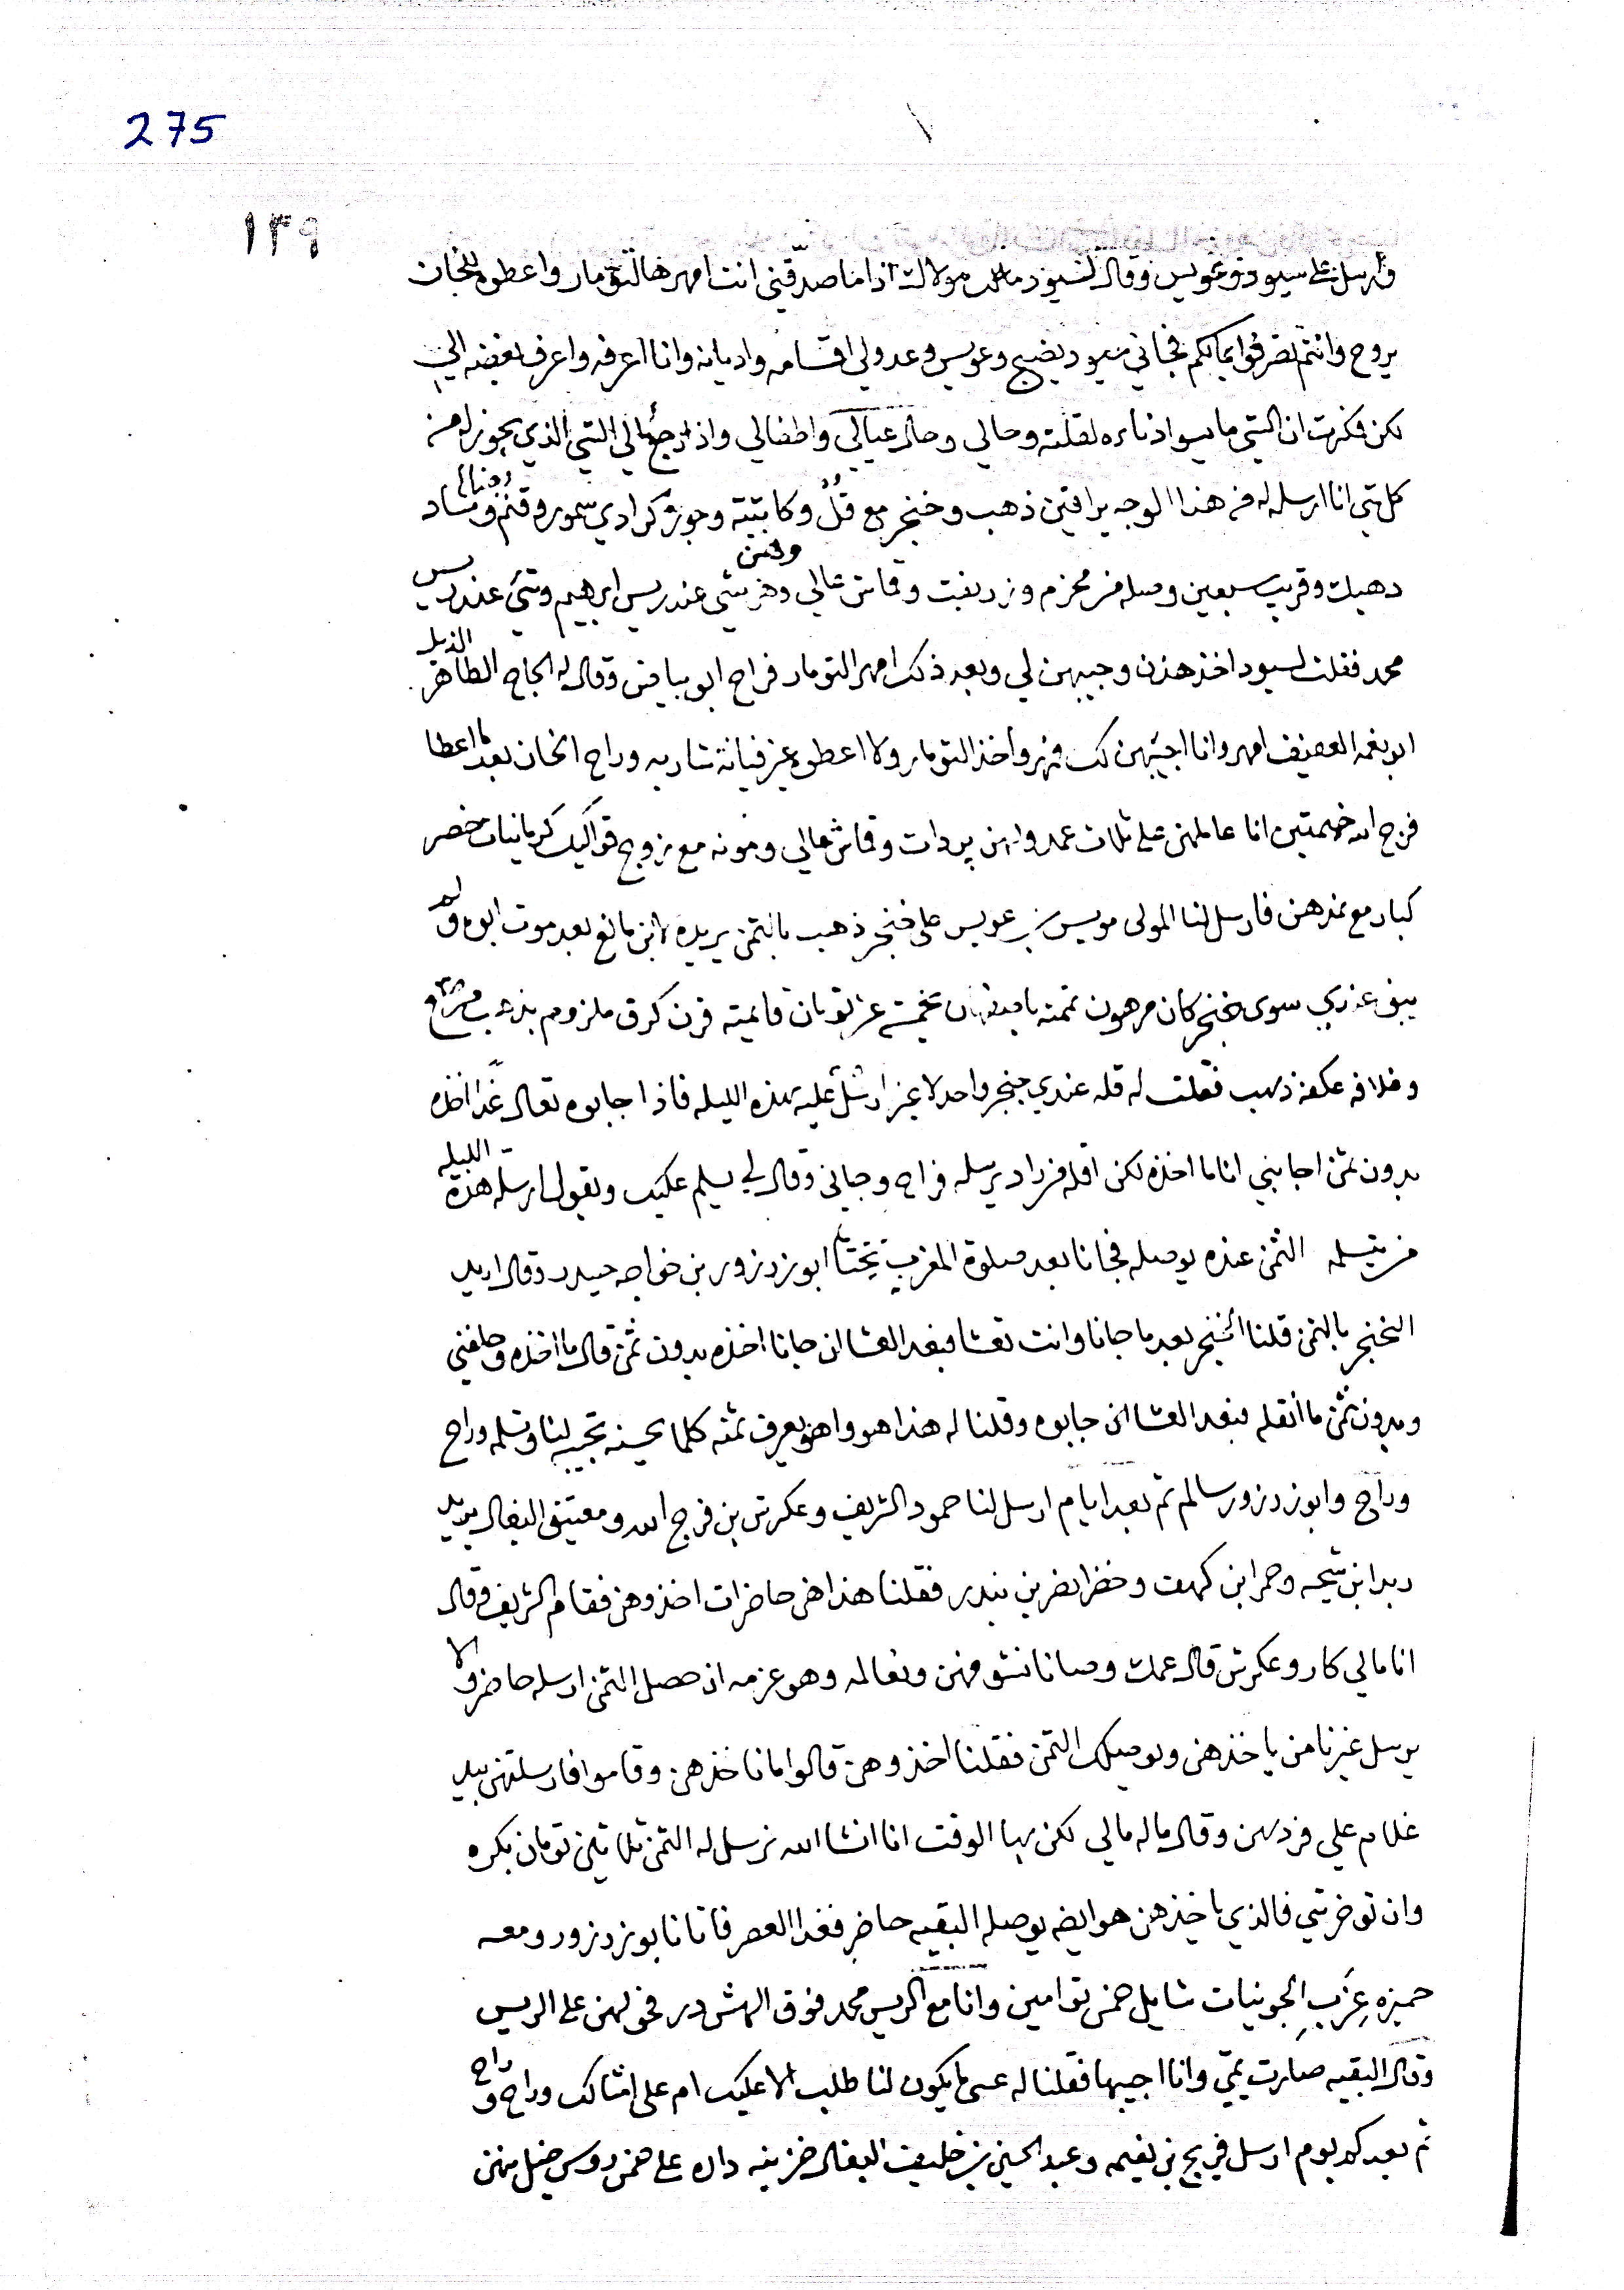 275
١٣٩
وارسل على سيود وعويس وقال لسيود مالك مولاك اذا ما صدقني انت امهر هالتومار واعطوه للخان
يروح وانتم تصرفوا بمالكم فجاني سيود يضج وعويس وعدولي اقسامه واديانه وانا اعرفه واعرف بغضه الي
لكن فكرت ان الشي ما يسوا اذناره لقلته وحالي وحال عيالي واطفالي واذا رجع الي الشي الذي يجوز له من
كل شي انا ارسله له فمن هذا الوجه يراقين ذهب وخنجر مع قل وكابتته وجوز كرادي سمور وقنم وشاد
دهبك وقريب سبعين وصله من مخزم وزربفت وقماش عالي وهن شي عند ريس ابرهيم وشي عند ريس
محمد فقلت لسيود اخذ هذن وجيبهن لي وبعد ذلك امهر التومار فراح ابو بياض وقال له الحاج الطاهر الذيل
ابو نغمه العفيف امهر وانا اجيبهن لك فمهر واخذ التومار ولا اعطوه غير فيانة شاريه وراح الخان بعد ما اعطا
فرج الله خيمتين انا عاملهن على ثلاث عمد وابن بردات وقماش عالي ومونه مع زوج قواليك كرمانيات خضر
كبار مع نمدهن فارسل لنا المولى مويس بن عويس على خنجر ذهب بالثمن يريده لابن مانع بعد موت ابوه ولم
يبق عندي سوى خنجر كان مرهون ثمنه بخمسة عشر تومان قايمته قرن كرق ملزوم بذهب مرصع
وغلافه عكفه ذهب فقلت له قله عندي خنجر واحد لا غير ارسل عليه هذه الليله فاذا جابوه تعال غدا انظره
بدون ثمن اجابني انا ما اخذه لكن اقله من راد يرسله فراح وجاني وقال لي يسلم عليك ويقول ارسله هذه الليله
من يتسلمه الثمن عنده يوصله فجانا بعد صلوة المغرب بختام ابو زرزور بن خواجه حيدر وقال اريد
الخنجر بالثمن قلنا الخنجر بعد ما جانا وانت تعشا فبعد العشا ان جانا اخذه بدون ثمن قال ما اخذه وحلفني
وبدون ثمن ما انقله فبعد العشا ان جابوه وقلنا له هذا هو واهو يعرف ثمنه كلما يحسنه تجيبه لنا وتسلمه وراح
وراح وابو زرزور سالم ثم بعد ايام ارسل لنا حمود الشريف وعكرش بن فرج الله ومعيتق البغال يريد
ربدا ابن شيحه وحمرا بن كهف وخضرا نضر بن بندر فقلنا هذا هن حاضرات اخذوهن فقام الشريف وقال
انا مالي كار وعكرش قال عمك وصانا نشوفهن ونعالمه وهو عزمه اذ حصل الثمن ارسله حاضر ولا
يرسل غيرنا من ياخذهن ويوصلك الثمن فقلنا اخذوهن قالوا ما ناخذهن وقاموا فارسلتهن بيد
غلام علي فردهن وقال ما له مالي لكن بها الوقت انا انشا الله نرسل له الثمن ثلاثين تومان بكره
وان توخر شي فالذي ياخذهن هو ايضه يوصله البقيه حاضر فغدا العصر فاتانا بو زرزور ومعه
حميزه عزب الجونيات شايل خمس توامين وانا مع الريس محمد فوق الهشرور فحولهن على الريس
وقال البقيه صارت يمي وانا اجيبها فقلنا له عسى ما يكون لنا طلب الا عليك ام على امثالك وراح وراح
ثم بعد كم يوم ارسل فريح بن نغيمه وعبد الحسين بن خليف البغال خزينه داره على خمس روس خيل منهن